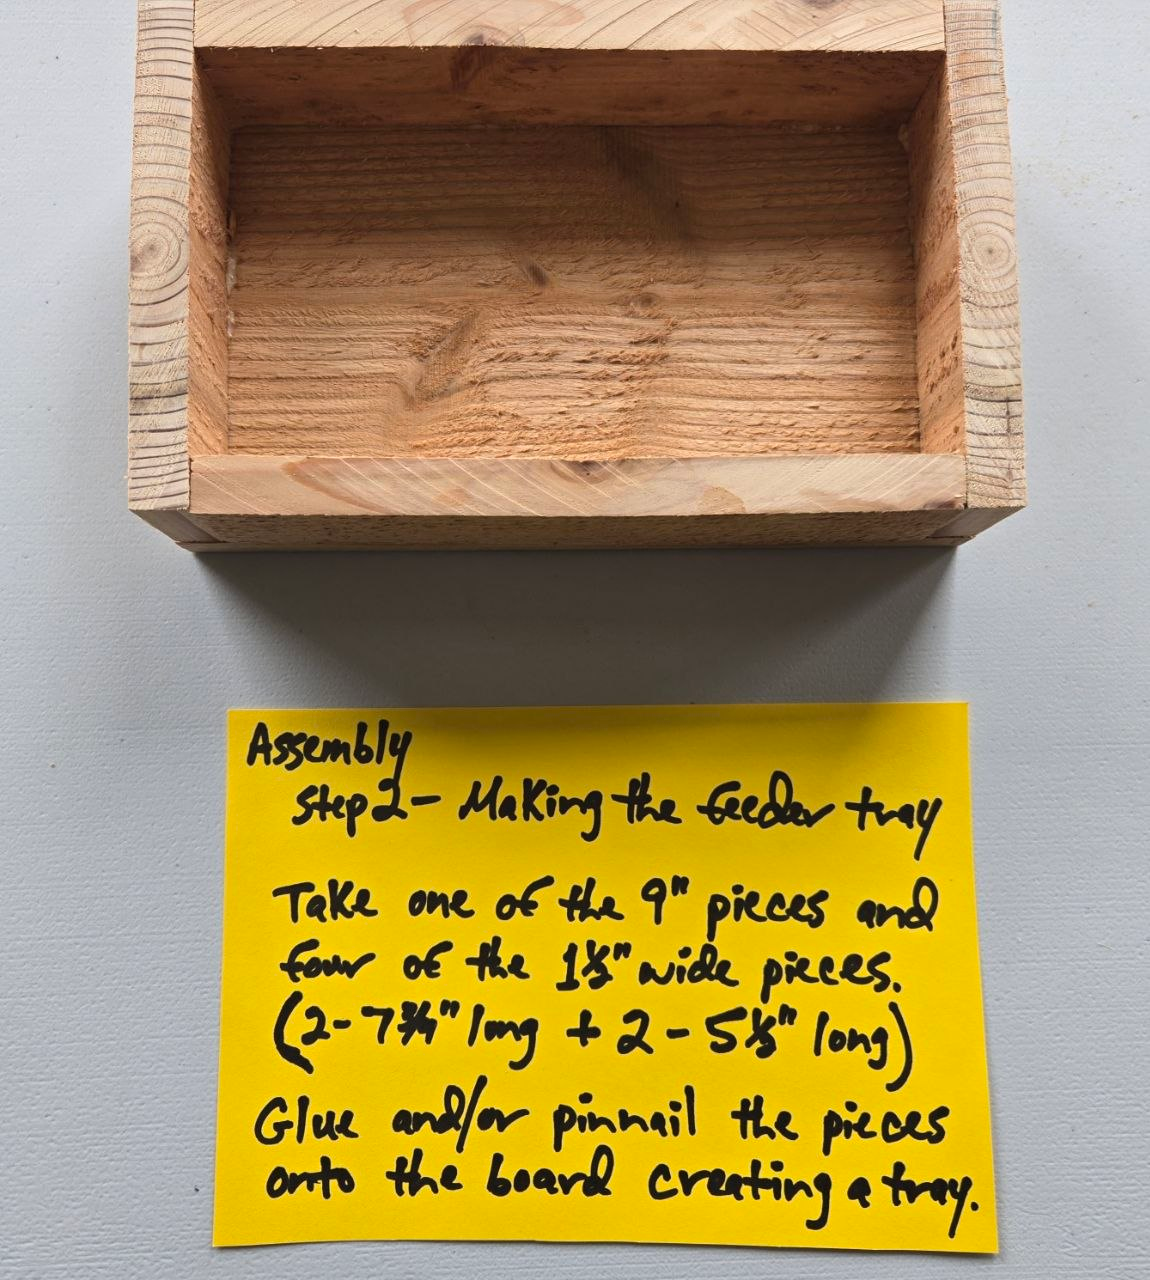 Assembly
Step 2- Making the feeder tray
Take one of the 9" pieces and
four of the 1½" wide pieces.
(2-7¾" long + 2-5½" long)
Glue and/or pinnail the pieces
onto the board creating a tray.